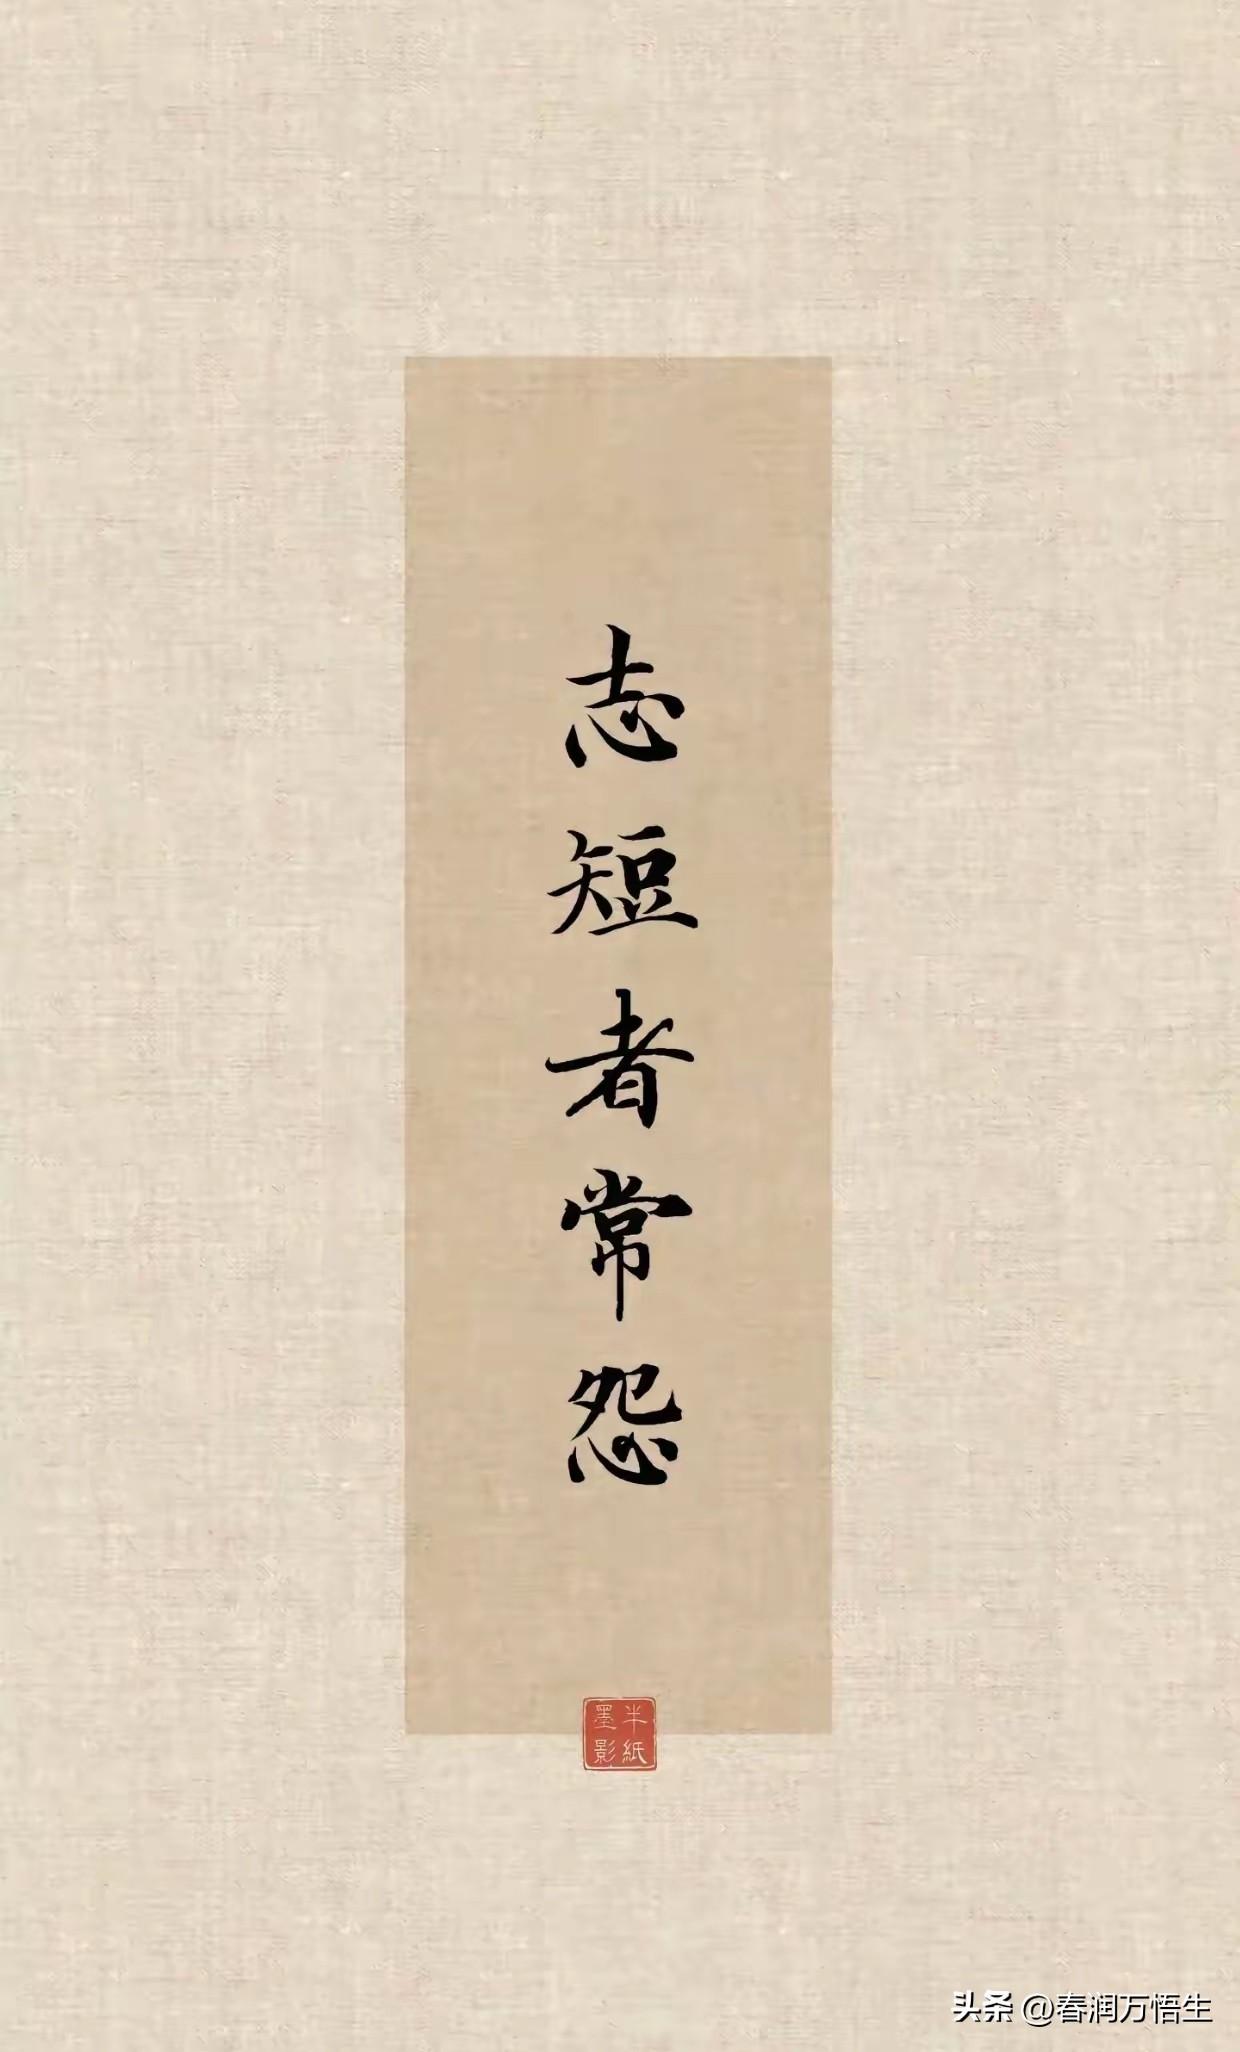 志短者常怨
半紙
墨影
头条 @春润万悟生